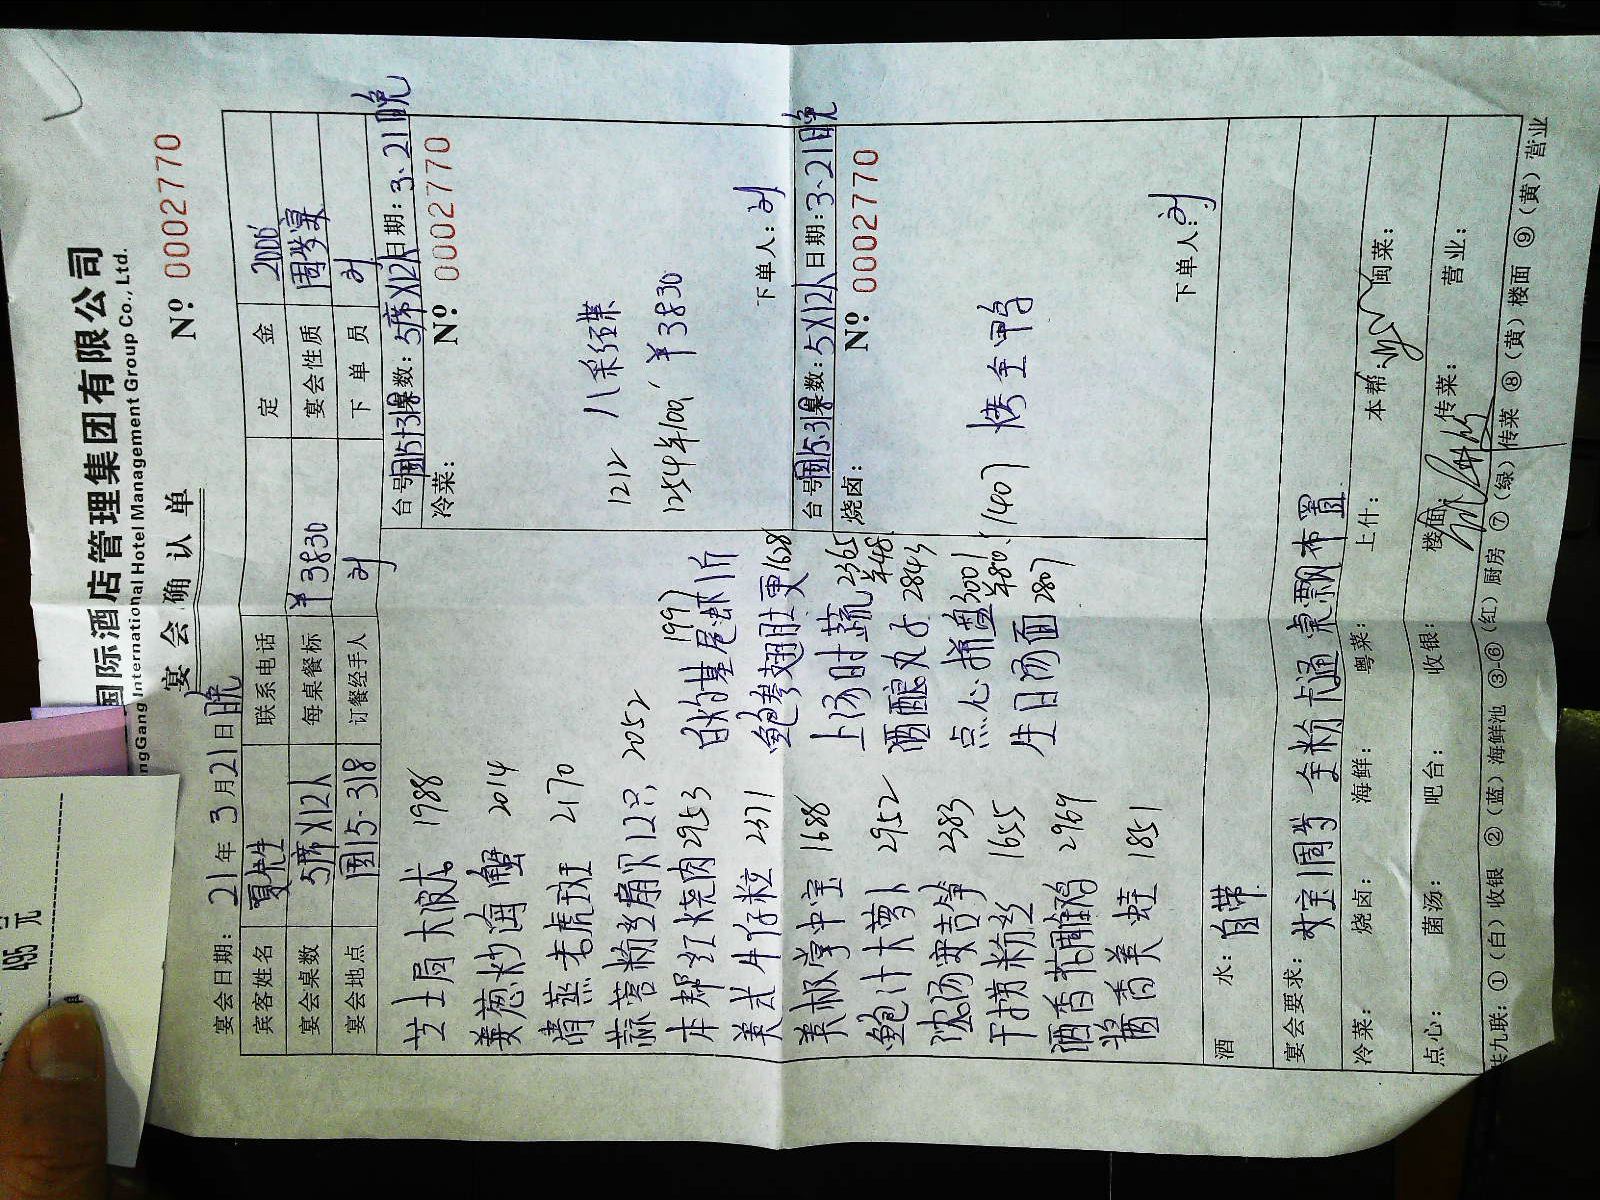 国际酒店管理集团有限公司
ngGang International Hotel Management Group Co., Ltd.
宴会确认单
Nº 0002770
宴会日期：21年3月21日晚
宾客姓名 夏先生 联系电话 定金 2000
宴会桌数 5席×12人 每桌餐标 ¥3830 宴会性质 周岁宴
宴会地点 园15-318 订餐经手人 刘 下单员 刘
芝士焗大波龙 1988
姜葱炒海蟹 2014
清蒸老虎斑 2170
蒜蓉粉丝扇贝12只 2052
本帮红烧肉 2953
美式牛仔粒 2371
美极掌中宝 1688
鲍汁大萝卜 2952
浓汤娄苦笋 2383
干捞粉丝 1655
酒香花雕鸡 2969
酱香美蛙 1851
白灼基尾虾1斤 1997
鲍参翅肚更 1628
上汤时蔬 2365
¥48
酒酿丸子 2843
点心拼盘 3001
¥80
生日汤面 2807
台号：园15-318 桌数：5席×12人 日期：3.21晚
冷菜： Nº 0002770
1212 八彩碟
1254 ¥100 ¥3830
下单人：刘
台号：园15-318 桌数：5×12人 日期：3.21晚
烧卤： Nº 0002770
1407 烤全鸭
下单人：刘
酒水：自带
宴会要求：女宝1周岁 全粉卡通桌飘布置
冷菜： 烧卤： 海鲜： 粤菜： 上什： 本帮： 闽菜：
点心： 菌汤： 吧台： 收银： 楼面： 传菜： 营业：
共九联：①（白）收银 ②（蓝）海鲜池 ③-⑥（红）厨房 ⑦（绿）传菜 ⑧（黄）楼面 ⑨（黄）营业
495 元